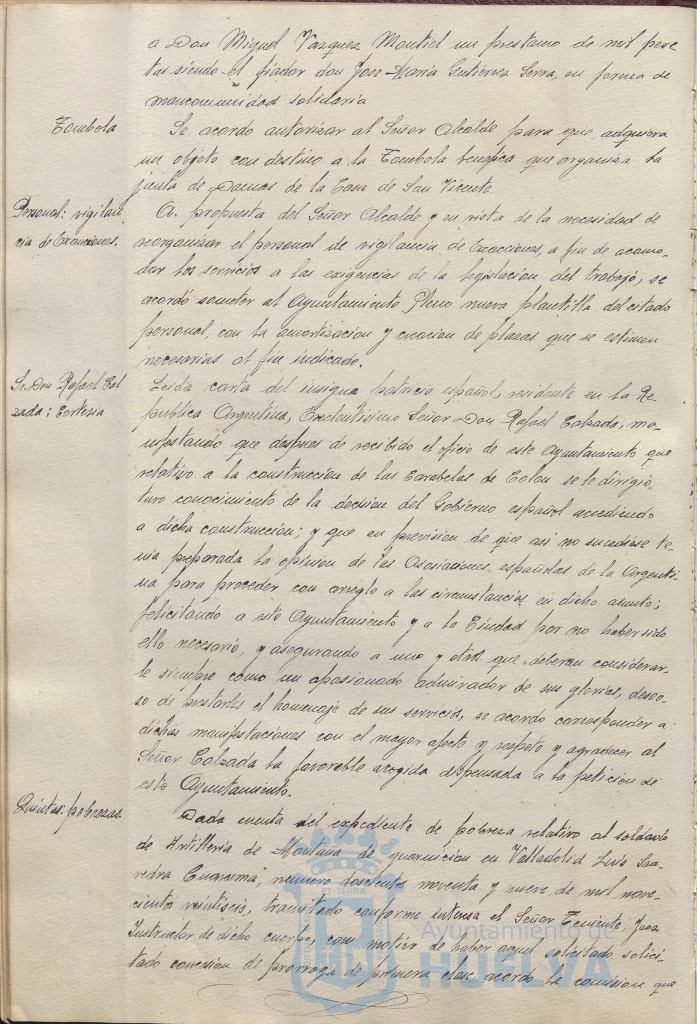 a Don Miguel Vazquez Montiel un prestamo de mil pese
tas siendo el fiador don Jose Maria Gutiérrez Serra, en forma de
mancomunidad solidaria
Tombola
Se acordo autorizar al Señor Alcalde para que adquiera
un objeto con destino a la Tombola benefica que organiza la
junta de Damas de la Casa de San Vicente
Personal: vigilan
cia de Exacciones.
A propuesta del Señor Alcalde y en vista de la necesidad de
reorganizar el personal de vigilancia de Exacciones, a fin de acomo-
dar los servicios a las exigencias de la legislacion del trabajo, se
acordó someter al Ayuntamiento Pleno nueva plantilla del citado
personal, con la amortizacion y creacion de plazas que se estimen
necesarias al fin indicado.
Sr. Don Rafael Cal
zada: Cortesia
Leida carta del insigne patricio español, residente en la Re-
publica Argentina, Excelentisimo Señor Don Rafael Calzada, ma-
nifestando que despues de recibido el oficio de este Ayuntamiento que
relativo a la construccion de las Carabelas de Colon se le dirigio,
tuvo conocimiento de la decision del Gobierno español accediendo
a dicha construccion; y que en prevision de que asi no sucediese te-
nia preparada la opinion de las Asociaciones españolas de la Argenti-
na para proceder con arreglo a las circunstancias en dicho asunto;
felicitando a este Ayuntamiento y a la Ciudad por no haber sido
ello necesario, y asegurando a uno y otros que deberan considerar-
le siempre como un apasionado admirador de sus glorias, deseo-
so de prestarles el homenaje de sus servicios, se acordo corresponder a
dichas manifestaciones con el mayor afecto y respeto y agradecer al
Señor Calzada la favorable acogida dispensada a la peticion de
este Ayuntamiento.
Quintas: pobrezas.
Dada cuenta del expediente de pobreza relativo al soldado
de Artilleria de Montaña de guarnicion en Valladolid Luis Saa-
vedra, numero doscientos noventa y nueve de mil nove-
cientos veintiseis, tramitado conforme interesa el Señor Teniente Juez
Instructor de dicho cuerpo, con motivo de haber aquel solicitado solici-
tado concesion de prorroga de primera clase acordo la comision que
Ayuntamiento de
HUELVA